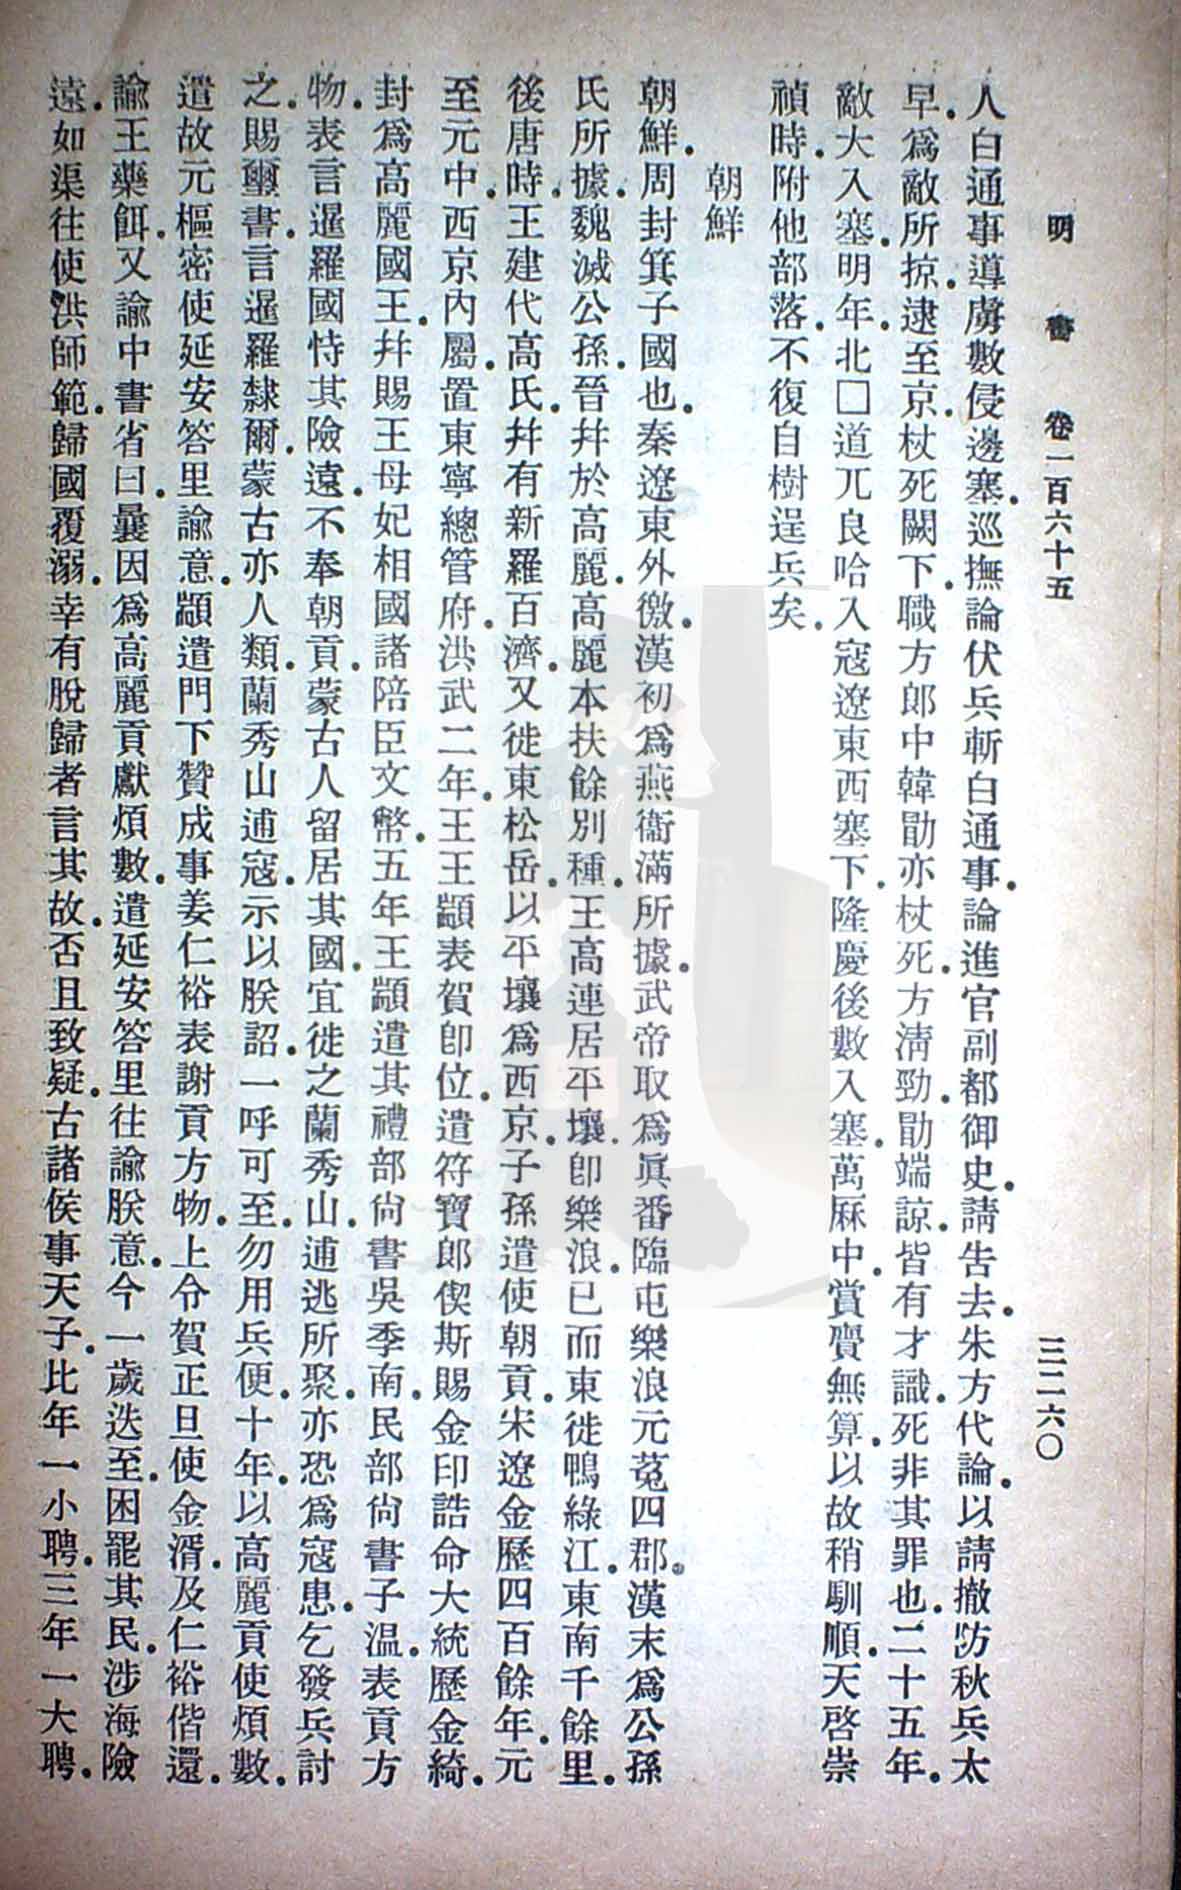 明書 卷一百六十五 三二六〇
人白通事導虜數侵邊塞.巡撫論伏兵斬白通事.論進官副都御史.請告去.朱方代論.以請撤防秋兵太
早.爲敵所掠.逮至京.杖死闕下.職方郎中韓勖亦杖死.方淸勁.勖端諒.皆有才識.死非其罪也.二十五年.
敵大入塞.明年.北□道兀良哈入寇遼東西塞下.隆慶後數入塞.萬厤中.賞賚無算.以故稍馴順.天啓崇
禎時.附他部落.不復自樹逞兵矣.
朝鮮
朝鮮.周封箕子國也.秦遼東外徼.漢初爲燕衞滿所據.武帝取爲眞番臨屯樂浪元菟四郡。漢末爲公孫
氏所據.魏滅公孫.晉幷於高麗.高麗本扶餘別種.王高連居平壤.卽樂浪.已而東徙鴨綠江.東南千餘里.
後唐時.王建代高氏.幷有新羅百濟.又徙東松岳.以平壤爲西京.子孫遣使朝貢.宋遼金歷四百餘年.元
至元中.西京內屬.置東寧總管府.洪武二年.王王顓表賀卽位.遣符寶郎偰斯賜金印誥命大統歷金綺.
封爲高麗國王.幷賜王母妃相國諸陪臣文幣.五年.王顓遣其禮部尙書吳季南.民部尙書子溫.表貢方
物.表言暹羅國恃其險遠.不奉朝貢.蒙古人留居其國.宜徙之蘭秀山.逋逃所聚.亦恐爲寇患.乞發兵討
之.賜璽書.言暹羅隸爾.蒙古亦人類.蘭秀山逋寇.示以朕詔.一呼可至.勿用兵便.十年.以高麗貢使煩數.
遣故元樞密使延安答里諭意.顓遣門下贊成事姜仁裕表謝貢方物.上令賀正旦使金湑.及仁裕偕還.
諭王藥餌.又諭中書省曰.曩因爲高麗貢獻煩數.遣延安答里往諭朕意.今一歲迭至.困罷其民.涉海險
遠.如渠往使洪師範.歸國覆溺.幸有脫歸者言其故.否且致疑.古諸侯事天子.比年一小聘.三年一大聘.